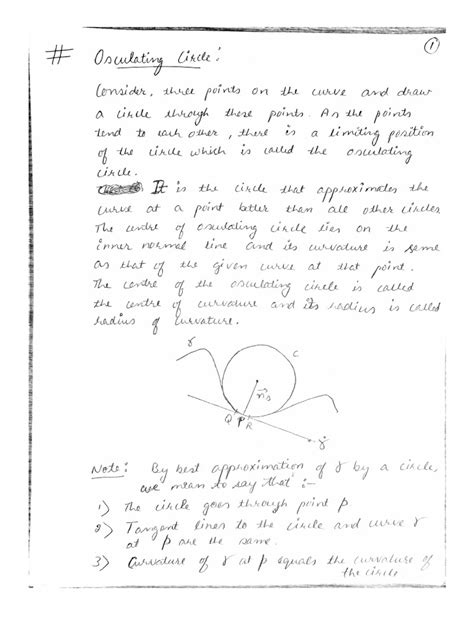 ①
# Osculating Circle :
Consider, three points on the curve and draw
a circle through these points. As the points
tend to each other, there is a limiting position
of the circle which is called the osculating
circle.
It is the circle that approximates the
curve at a point better than all other circles
The centre of osculating circle lies on the
inner normal line and its curvature is same
as that of the given curve at that point.
The centre of the osculating circle is called
the centre of curvature and its radius is called
radius of curvature.
γ
C
n̄s
Q P R
γ̇
Note : By best approximation of γ by a circle,
we mean to say that :-
1) The circle goes through point p
2) Tangent lines to the circle and curve γ
at p are the same.
3) Curvature of γ at p equals the curvature of
the circle